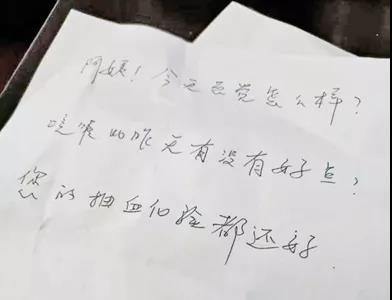 阿姨！今天感觉怎么样？
咳嗽比昨天有没有好点？
您的抽血化验都还好